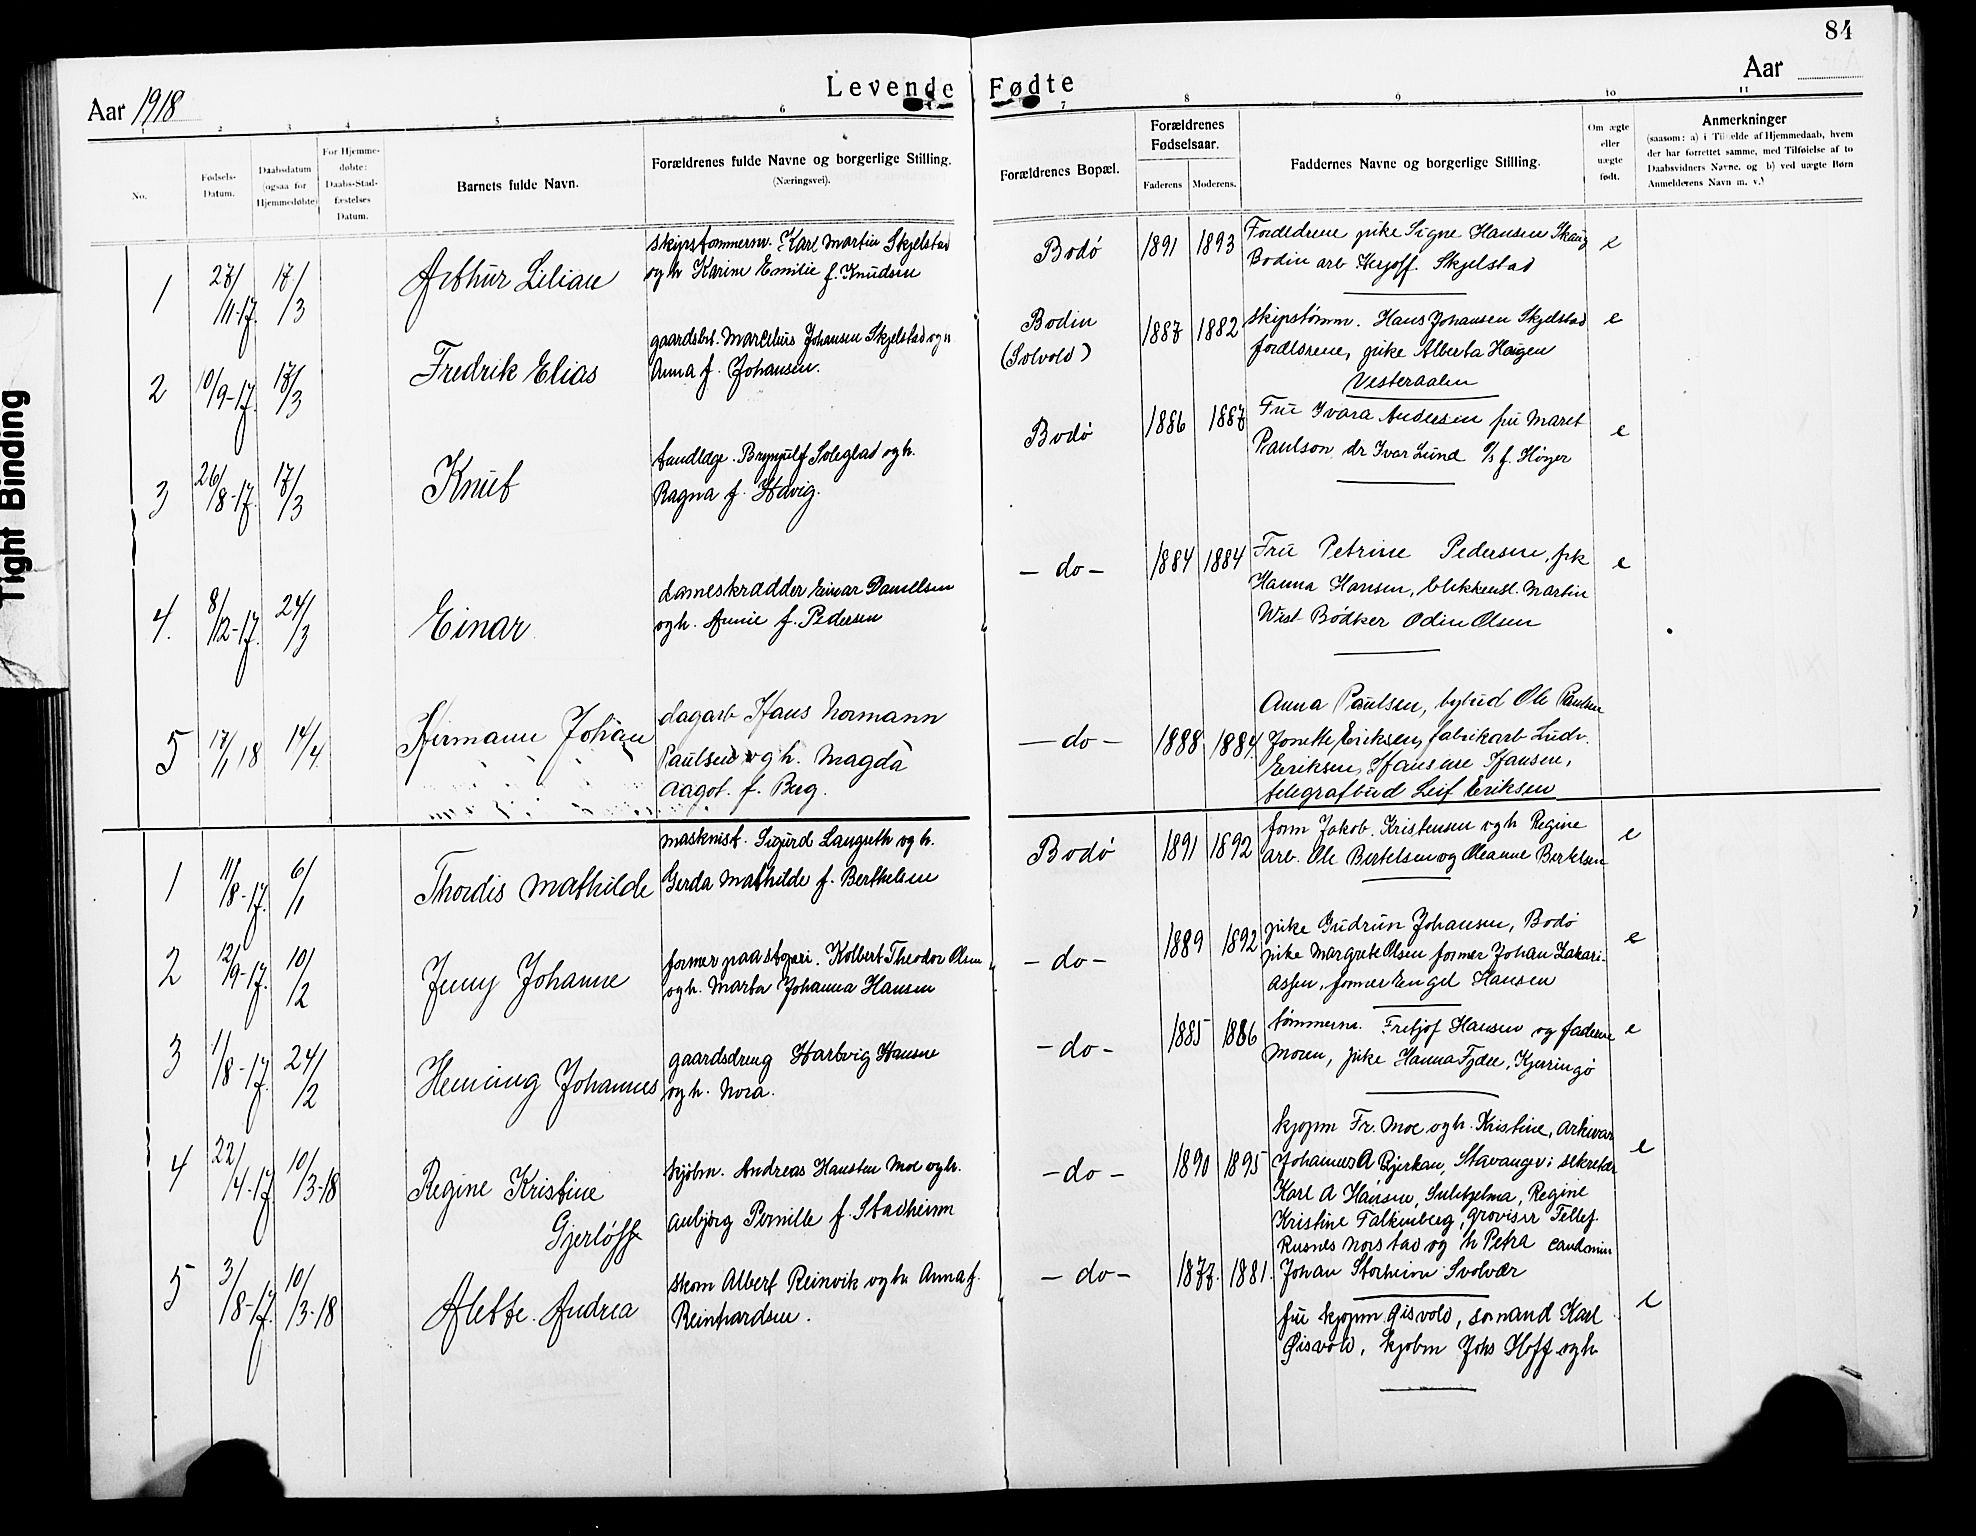 84
Levende Fødte
Aar 1918
Aar
1 2 3 4 5 6 7 8 9 10 11
No.
Fødsels-
Datum.
Daabsdatum
(ogsaa for
Hjemmedøbte)
For Hjemme-
døbte:
Daabs-Stad-
fæstelses
Datum.
Barnets fulde Navn.
Forældrenes fulde Navne og borgerlige Stilling.
(Næringsvei).
Forældrenes Bopæl.
Forældrenes
Fødselsaar.
Faderens
Moderens.
Faddernes Navne og borgerlige Stilling.
Om ægte
eller
uægte
født.
Anmerkninger
(saasom: a) i Tilfælde af Hjemmedaab, hvem
der har forrettet samme, med Tilføielse af to
Daabsvidners Navne, og b) ved uægte Børn
Anmelderens Navn m. v.)
1
27/11-17.
17/3
Arthur Lilian
skipstømmerm. Karl Martin Skjelstad
og h Karine Emilie f. Knudsen
Bodø
1891
1893
Forældrene pike Signe Hansen Skaug
Bodin arb Herjolf. Skjelstad
e
2
10/9-17.
17/3
Fredrik Elias
gaardsbr. Marcelius Johansen Skjelstad og h
Anna f. Johansen.
Bodin
(Solvold)
1887
1882
skipstømm. Hans Johansen Skjelstad
forældrene, pike Alberta Haugen
Vesteraalen
e
3
26/8-17.
17/3
Knut
tandlæge. Brynjulf Soleglad og h.
Ragna f. Havig.
Bodø
1886
1887
Fru Ivara Andersen fru Maret
Paulson dr Ivar Lund o/s f. Höyer
e
4.
8/12-17.
24/3
Einar
dameskrædder Einar Danielsen
og h. Annie f. Pedersen
- do -
1884
1884
Fru Petrine Pedersen, frk
Hanna Hansen, blikkensl. Martin
Wist Bödker Odin Olsen
e
5
17/1 18
14/4.
Hermann Johan
dagarb Hans Normann
Paulsen og h. Magda
Aagot. f. Berg.
- do -
1888
1884.
Anna Paulsen, bybud Ole Paulsen
Jonette Eriksen, fabrikarb Ludv.
Eriksen, Hansine Hansen,
telegrafbud Leif Eriksen
1
11/8-17.
6/1
Thordis Mathilde
maskinist. Sigurd Langseth og h.
Gerda Mathilde f. Berthelsen
Bodø
1891
1892
form Jakob. Kristensen og h Regine
arb. Ole Bertelsen og Oleanne Bertelsen
e
2
12/9-17.
10/2
Jenny Johanne
former paa støperi. Kolbert Theodor Olsen
og h. Marta Johanna Hansen
- do -
1889
1892
pike Gudrun Johansen, Bodø
pike Margrete Olsen former Johan Zakari-
assen, former Engel Hansen
e
3
1/8-17.
24/2
Henning Johannes
gaardsdreng Hartvig Hansen
og h. Nora.
- do -
1885
1886
tømmerm. Fritjof Hansen og faderen
Moren, pike Hanna Fjære, Kjerringø
e
4
22/4-17
10/3-18
Regine Kristine
Gjerløff
kjøbm. Andreas Hansten Moe og h.
Aubjørg Pernille f. Stadheim
- do -
1890
1895
kjøpm Fr. Moe og h. Kristine, arkivar
Johannes A Bjerkan, Stavanger; sekretær
Karl A Hansen, Sulitjelma, Regine
Kristine Falkenberg, provisor Tellef
Rusnes Norstad og h Petra candmin
Johan Storheim Svolvær
e
5
3/8-17.
10/3-18
Alette. Andrea
skom Albert Reinvik og h. Anna f.
Reinhardsen.
- do -
1877.
1881.
fru kjøpm. Øisvold, sømand Karl
Øisvold, kjøbm Johs Hoff og h
e
Tight Binding